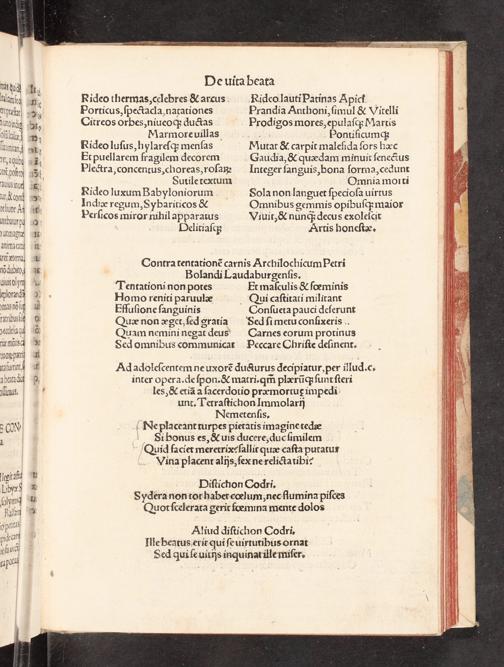 De uita beata
Rideo thermas, celebres & arcus
Porticus, spectacla, natationes
Citreos orbes, niueoq; ductas
Marmore uillas
Rideo lusus, hylaresq; mensas
Et puellarem fragilem decorem
Plectra, concentus, choreas, rosasq;
Sutile textum
Rideo luxum Babyloniorum
Indiæ regum, Sybariticos &
Persicos miror nihil apparatus
Delitiasq;
Rideo lauti Patinas Apici
Prandia Anthoni, simul & Vitelli
Prodigos mores, epulasq; Martis
Pontificumq;
Mutat & carpit malesida sors hæc
Gaudia, & quædam minuit senectus
Integer sanguis, bona forma, cedunt
Omnia morti
Sola non languet speciosa uirtus
Omnibus gemmis opibusq; maior
Viuit, & nunq̃ decus exolescit
Artis honestæ.
Contra tentationē carnis Archilochicum Petri
Bolandi Laudaburgensis.
Tentationi non potes
Homo reniti paruulæ
Effusione sanguinis
Quæ non æget, sed gratia
Quam nemini negat deus
Sed omnibus communicat
Et masculis & fœminis
Qui castitati militant
Consueta pauci deserunt
Sed si metu consixeris
Carnes eorum protinus
Peccare Christe desinent.
Ad adolescentem ne uxorē ducturus decipiatur, per illud. c.
inter opera. de spon. & matri. qm̃ plærūq; sunt steri
les, & etiā a sacerdotio præmortuę impedi
unt. Tetrastichon Immolarij
Nemetensis.
Ne placeant turpes pietatis imagine tedæ
Si bonus es, & uis ducere, duc similem
Quid faciet meretrix? fallit quæ casta putatur
Vina placent alijs, fex ne relicta tibi?
Distichon Codri.
Sydera non tot habet cœlum, nec flumina pisces
Quot scelerata gerit fœmina mente dolos
Aliud distichon Codri.
Ille beatus erit qui se uirtutibus ornat
Sed qui se uitijs inquinat ille miser.